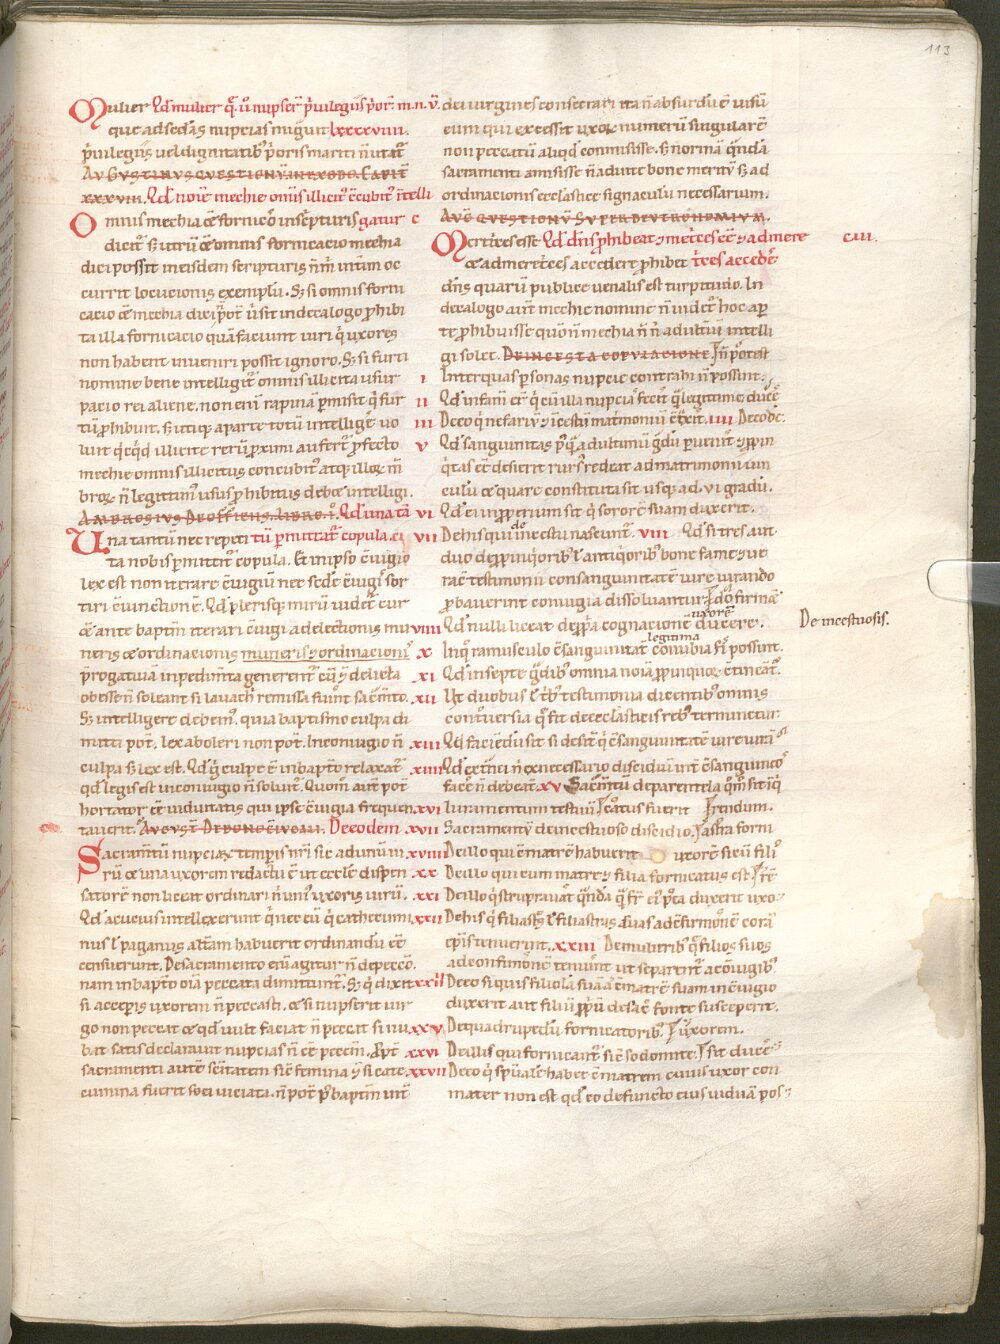 113
Mulier Qd mulier q̄. ū nupser̄ p̄uilegiis p̄or̄ m. n. v̄.
que ad sedas nupcias migūt lxxxxviiii.
p̄uilegiis uel dignitatib; p̄oris mariti n̄ utat̄
Augustinus questionū in exodo. Capit̄
xxxviii. Qd noīe mechie omīs illicit; c̄cubit; ītelli
Omnis mechia œ̄ fornicō in sc̄pturis gatur c
dicit̄ . S; utrū œ̄ omnis fornicacio mechia
dici possit in eisdem scripturis n̄m̄ int̄im oc
currit locucionis exemplū. S; si omnis forni
cacio œ̄ mechia dici pōt . ū sit in decalogo p̄hibi
ta illa fornicacio quā faciunt uiri q̄ uxores
non habent inueniri possit ignoro. S; si furti
nomine bene intelligit̄ omnis illicita usur
pacio rei aliene. non enī rapinā p̄misit q̄ fur
tū p̄hibuit. s; utiq; a parte totū intelligē uo
luit q̄cq̄d illicite rerū p̄ximi aufert̄ . p̄fecto
mechie omnis illicitus concubit; atq; illoꝝ m̄
broꝝ n̄ legittim; usus p̄hibitus debœ̄ intelligi.
Ambrosius De officiis. libro . i. Qd una tā
Una tantū nec repeti tū p̄mittat̄ copula. ci
ta nobis p̄mittit̄ copula. Et in ipso c̄iugio
lex est non iterare c̄iugiū nec sede c̄iugī sor
tiri c̄iunctionē. Qd plerisq; mirū uidet̄ cur
œ̄ ante baptm̄ iterari c̄iugī ad electionis mu
neris œ ordinacionis muneris ⁊ ordinacionī
p̄rogatiuā inpedimta generent̄ cū ⁊ delicta
obesse n̄ soleant si lauach̄ remissa fuīnt sac̄mto.
S; intelligere debem; . quia baptismo culpa di
mitti pōt . lex aboleri non pōt. In coniugio n̄
culpa s; lex est. Qd q̄ culpe ē in bapto relaxat̄
qd legis est in coniugio n̄ soluit̄. Quom̄ aut̄ pōt
hortator ēē uiduitatis qui ipse c̄iugia frequen
tauerit. August̄ De bono c̄iugali. De eodem
Sacramtū nupciaꝝ tempis nr̄i sic ad unū ui
rū œ una uxorem redactū ē ut eccl̄e dispen
satorē non liceat ordinari n̄ uni; uxoris uirū.
Qd acucius intellexerunt q̄ nec eū q̄ cathecumi
nus l̄ paganus alt̄am habuerit ordinandū ēē
censuerunt. De sacramento enī agitur n̄ de pecc̄o.
nam in bapto oīa peccata dimittunt̄. S; q̄ dixit
si acceperis uxorem n̄ peccasti. œ si nupserit uir
go non peccat œ qd uult faciat n̄ peccat si nu
bat satis declarauit nupcias n̄ ēē peccm̄. Ppt̄
sacramenti autē sc̄itatem sic̄ femina ⁊ si cate
cumina fuerit sbei uiciata. n̄ pōt p̄ baptm̄ int̄
dei uirgines consecrari ita n̄ absurdū ē uisū
eum qui excessit uxoꝝ numerū singularē
non peccatū aliqd commisisse. s; normā q̄ndā
sacramenti amisisse n̄ ad uite bone meritū . s; ad
ordinacionis eccl̄astice signaculū necessarium.
Auḡ questionū super deutronomium.
Mertices esse Qd dn̄s p̄hibeat ⁊ mert̄ces ēē ⁊ ad mere ciii.
œ ad mertices accedere p̄hibet t̄ces accedē
dn̄s quarū publice uenalis est turpitudo. In
decalogo aūt mechie nomine n̄ uidet̄ hoc aper
te p̄hibuisse quōn̄ mechia n̄ n̄ adultiū intelli
gi solet. De incesta copulacione
i Inter quas p̄sonas nupcie contrahi n̄ possint.
ii Qd infam̄ er̄ q̄ cū illa nupcia fecit̄ q̄ legittime ducē
iii De eo q̄ nefariū ⁊ incestū matrimoniū c̄t̄xit. iiii De eode.
v Qd sanguinitas p; q̄ ad ultimū g̊dū peruenit̄ ⁊ p̄pin
q̄tas ēē desierit rurs; redeat ad matrimonii uin
culū œ quare constituta sit usq; ad . vi gradū.
vi Qd ei impperium sit q̄ sororē suam duxerit.
vii De his qui de incestu nascunt̄. viii. Qd si tres aut
duo de p̄pinq̄orib; l̄ antiq̄orib; bone fame ⁊ ue
race testimonii consanguinitatē iure iurando
p̄bauerint coniugia dissoluantur.
viiii Qd nulli liceat de p̄p̄a cognacione uxorē ducere.
De incestuosis.
x In q̄ ramusculo c̄sanguinitat̄ legitima conubia fi̅ possint.
xi Qd in septē g̊dib; omnia noīa p̄pinquoꝝ c̄tineāt̄.
xii Ut duobus l̄ trib; testimonia dicentib; omnis
contouersia q̄ fit de eccl̄asticis reb; terminetur
xiii Qd faciēdū sit si desit q̄ c̄sanguinitatē iure iurā
xiiii Qd extinci n̄ ex necessario discidiū int̄ c̄sanguineo
facē n̄ debeat. xv Sac̄mtū de parentela qm̄ sit iq̄
xvi Iuramentum testiū
xvii Sacramentū de incestuoso discidio
xviii De illo qui c̄matrē habuerit uxorē sicū fili
xx De illo qui cum matre ⁊ filia fornicatus est
xxi De illo q̄ struprauāt q̄ndā q̄ fr̄ ei; p̄ta duxerit uxo
xxii De his q̄ filiast̄s l̄ filiastras suas ad c̄firmōnē corā
ep̄is tenuerint. xxiii De mulierib; q̄ filios suos
ad confirmōnē tenuīnt ut separent̄ a c̄iugib;
xxiiii De eo si quis filiolā suā aūt c̄matrē suam in c̄iugio
duxerit aut filiū p̄p̄iū de sacē fonte susceperit.
xxv De quadrupedū fornicatorib;
xxvi De illis qui fornicant̄ sic̄ sodomite
xxvii De eo q̄ sp̄ualē habet c̄matrem cuius uxor com
mater non est qd eo defuncto eius uiduā pos